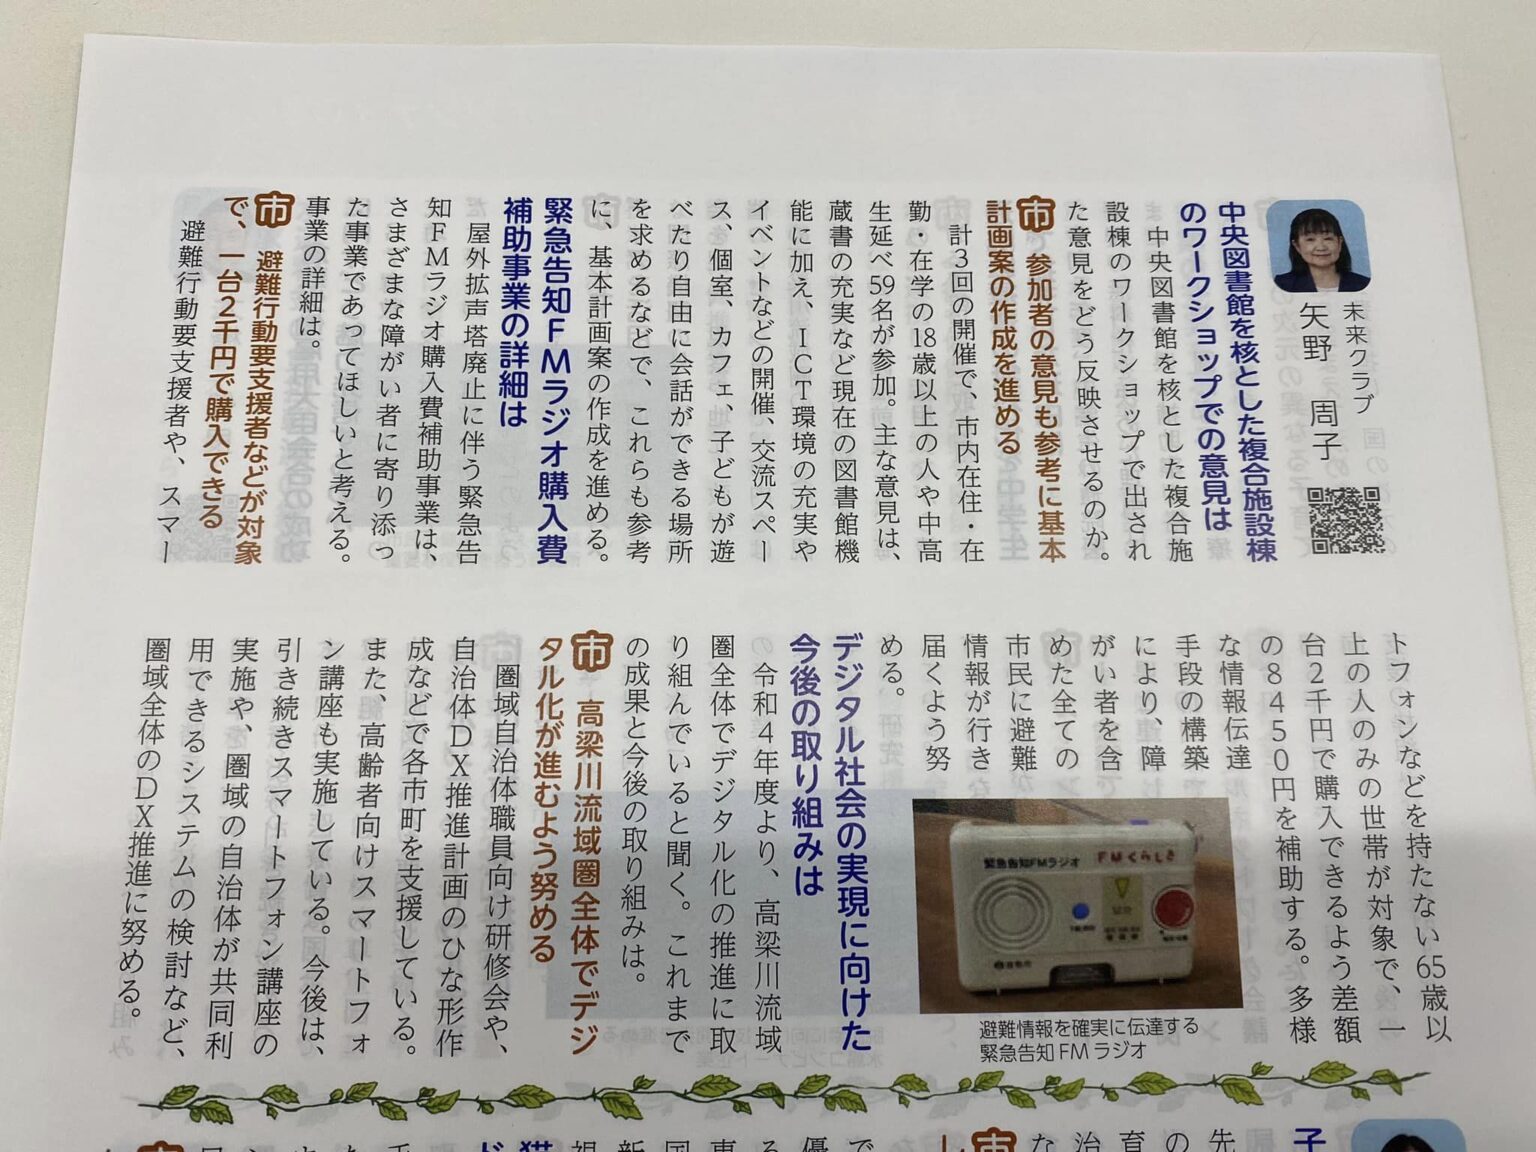 未来クラブ
矢野 周子
中央図書館を核とした複合施設棟
のワークショップでの意見は
中央図書館を核とした複合施
設棟のワークショップで出され
た意見をどう反映させるのか。
市 参加者の意見も参考に基本
計画案の作成を進める
計3回の開催で、市内在住・在
勤・在学の18歳以上の人や中高
生延べ59名が参加。主な意見は、
蔵書の充実など現在の図書館機
能に加え、ICT環境の充実や
イベントなどの開催、交流スペー
ス、個室、カフェ、子どもが遊
べたり自由に会話ができる場所
を求めるなどで、これらも参考
に、基本計画案の作成を進める。
緊急告知FMラジオ購入費
補助事業の詳細は
屋外拡声塔廃止に伴う緊急告
知FMラジオ購入費補助事業は、
さまざまな障がい者に寄り添っ
た事業であってほしいと考える。
事業の詳細は。
市 避難行動要支援者などが対象
で、一台2千円で購入できる
避難行動要支援者や、スマー
トフォンなどを持たない65歳以
上の人のみの世帯が対象で、一
台2千円で購入できるよう差額
の8450円を補助する。多様
な情報伝達
手段の構築
により、障
がい者を含
めた全ての
市民に避難
情報が行き
届くよう努
める。
緊急告知FMラジオ
FMくらしき
避難情報を確実に伝達する
緊急告知FMラジオ
デジタル社会の実現に向けた
今後の取り組みは
令和4年度より、高梁川流域
圏全体でデジタル化の推進に取
り組んでいると聞く。これまで
の成果と今後の取り組みは。
市 高梁川流域圏全体でデジ
タル化が進むよう努める
圏域自治体職員向け研修会や、
自治体DX推進計画のひな形作
成などで各市町を支援している。
また、高齢者向けスマートフォ
ン講座も実施している。今後は、
引き続きスマートフォン講座の
実施や、圏域の自治体が共同利
用できるシステムの検討など、
圏域全体のDX推進に努める。